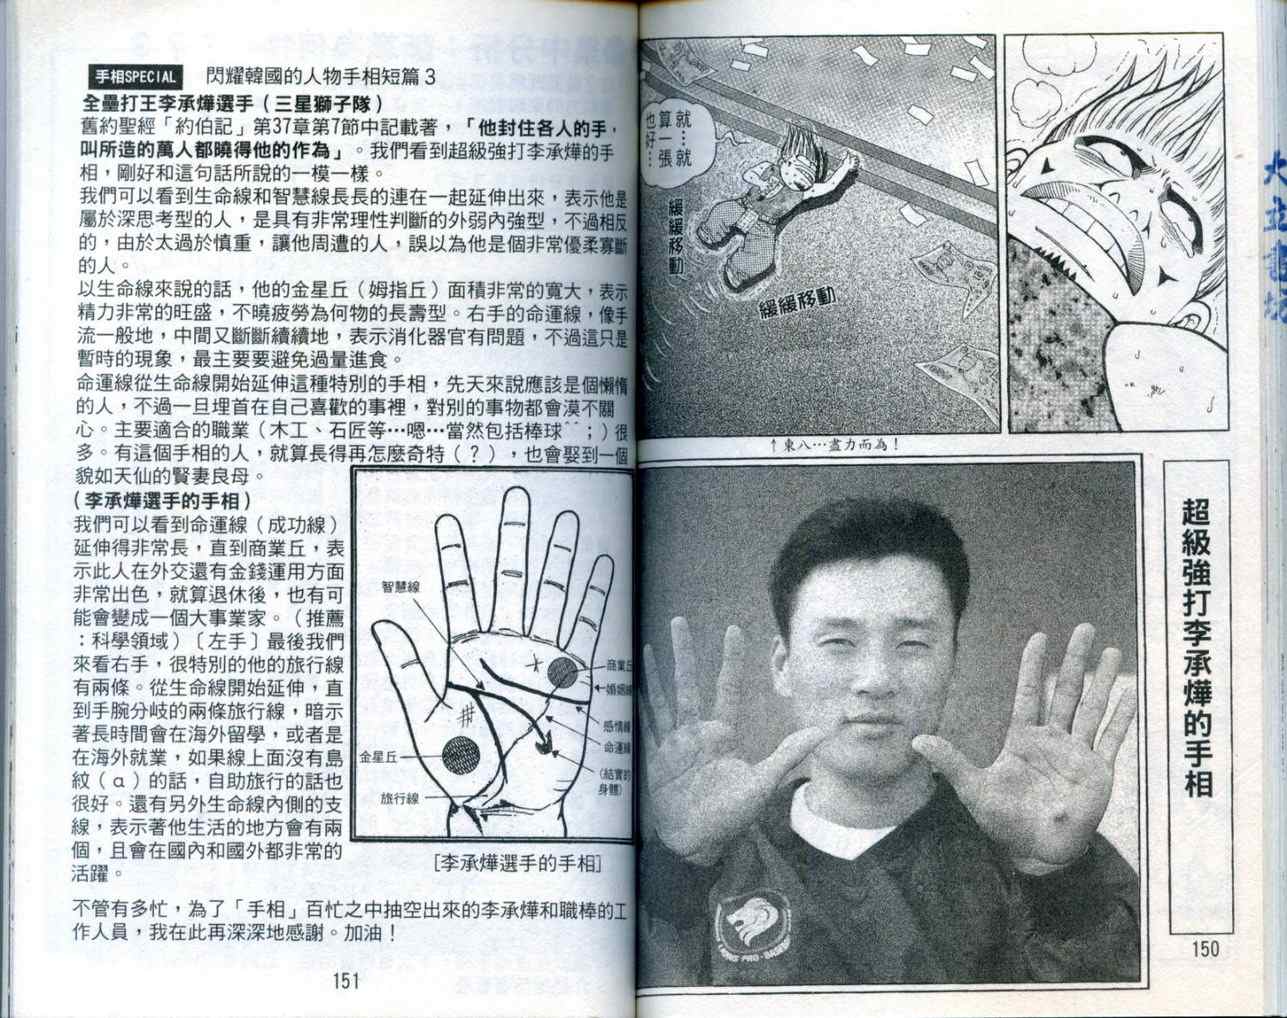 就…就
算一張
也好…
緩緩移動
緩緩移動
↑東八…盡力而為！
超級強打李承燁的手相
LIONS PRO-BASE
150
手相SPECIAL 閃耀韓國的人物手相短篇3
全壘打王李承燁選手（三星獅子隊）
舊約聖經「約伯記」第37章第7節中記載著，「他封住各人的手，
叫所造的萬人都曉得他的作為」。我們看到超級強打李承燁的手
相，剛好和這句話所說的一模一樣。
我們可以看到生命線和智慧線長長的連在一起延伸出來，表示他是
屬於深思考型的人，是具有非常理性判斷的外弱內強型，不過相反
的，由於太過於慎重，讓他周遭的人，誤以為他是個非常優柔寡斷
的人。
以生命線來說的話，他的金星丘（姆指丘）面積非常的寬大，表示
精力非常的旺盛，不曉疲勞為何物的長壽型。右手的命運線，像手
流一般地，中間又斷斷續續地，表示消化器官有問題，不過這只是
暫時的現象，最主要要避免過量進食。
命運線從生命線開始延伸這種特別的手相，先天來說應該是個懶惰
的人，不過一旦埋首在自己喜歡的事裡，對別的事物都會漠不關
心。主要適合的職業（木工、石匠等…嗯…當然包括棒球^^；）很
多。有這個手相的人，就算長得再怎麼奇特（？），也會娶到一個
貌如天仙的賢妻良母。
（李承燁選手的手相）
我們可以看到命運線（成功線）
延伸得非常長，直到商業丘，表
示此人在外交還有金錢運用方面
非常出色，就算退休後，也有可
能會變成一個大事業家。（推薦
：科學領域）〔左手〕最後我們
來看右手，很特別的他的旅行線
有兩條。從生命線開始延伸，直
到手腕分岐的兩條旅行線，暗示
著長時間會在海外留學，或者是
在海外就業，如果線上面沒有島
紋（α）的話，自助旅行的話也
很好。還有另外生命線內側的支
線，表示著他生活的地方會有兩
個，且會在國內和國外都非常的
活躍。
智慧線
商業丘
婚姻線
感情線
命運線
（結實的
身體）
金星丘
旅行線
[李承燁選手的手相]
不管有多忙，為了「手相」百忙之中抽空出來的李承燁和職棒的工
作人員，我在此再深深地感謝。加油！
151